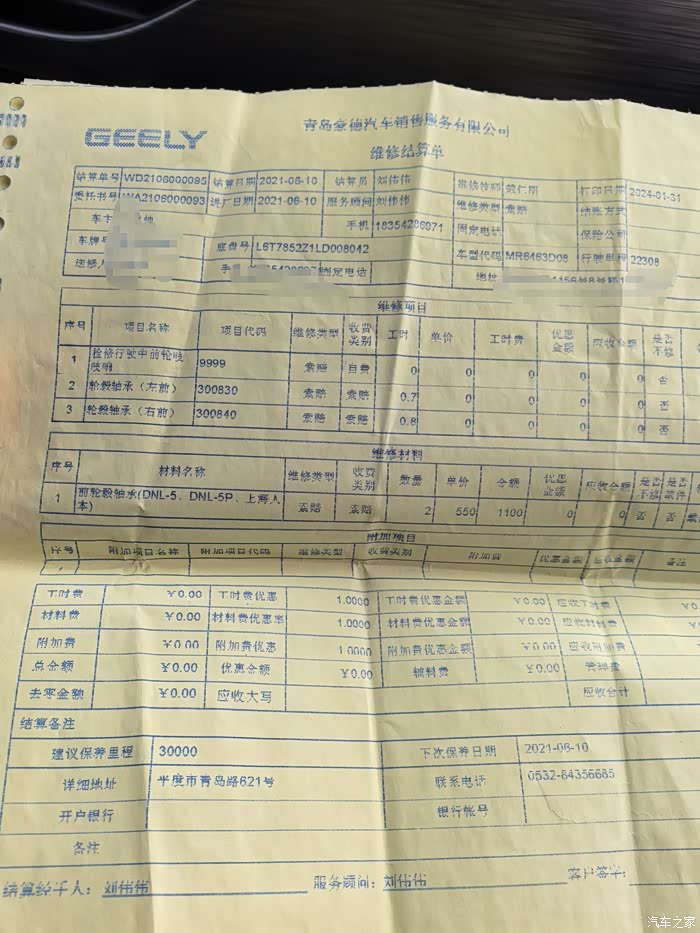 GEELY
青岛豪德汽车销售服务有限公司
维修结算单
结算单号 WD2106000095 结算日期 2021-06-10 结算员 刘伟伟 维修技师 打印日期 2024-01-31
委托书号 WA2106000093 进厂日期 2021-06-10 服务顾问 刘伟伟 维修类型 索赔 结账方式
车主 手机 18354286071 固定电话 保险公司
车牌号 底盘号 L6T7852Z1LD008042 车型代码 MR6463D08 行驶里程 22308
送修人 手机 固定电话 地址
维修项目
序号 项目名称 项目代码 维修类型 收费类别 工时 单价 工时费 优惠金额 应收金额 是否不修
1 检修行驶中前轮吱吱响 9999 索赔 自费 0 0 0 0 0 否
2 轮毂轴承（左前） 300830 索赔 索赔 0.7 0 0 0 0 否
3 轮毂轴承（右前） 300840 索赔 索赔 0.8 0 0 0 0 否
维修材料
序号 材料名称 维修类型 收费类别 数量 单价 金额 优惠金额 应收金额 是否不修 是否
1 前轮毂轴承(DNL-5、DNL-5P、上海人本) 索赔 索赔 2 550 1100 0 0 否 否
附加项目
序号 附加项目名称 附加项目代码 维修类型 收费类别 附加费 优惠金额 应收金额 备注
工时费 ￥0.00 工时费优惠 1.0000 工时费优惠金额 ￥0.00 应收工时费 ￥0
材料费 ￥0.00 材料费优惠率 1.0000 材料费优惠金额 ￥0.00 应收材料费 ￥0
附加费 ￥0.00 附加费优惠 1.0000 附加费优惠金额 ￥0.00 应收附加费 ￥0
总金额 ￥0.00 优惠金额 ￥0.00 辅料费 ￥0.00 管理费
去零金额 ￥0.00 应收大写 应收合计
结算备注
建议保养里程 30000 下次保养日期 2021-06-10
详细地址 平度市青岛路621号 联系电话 0532-84356685
开户银行 银行帐号
备注
结算经手人： 刘伟伟 服务顾问： 刘伟伟 客户签字：
汽车之家